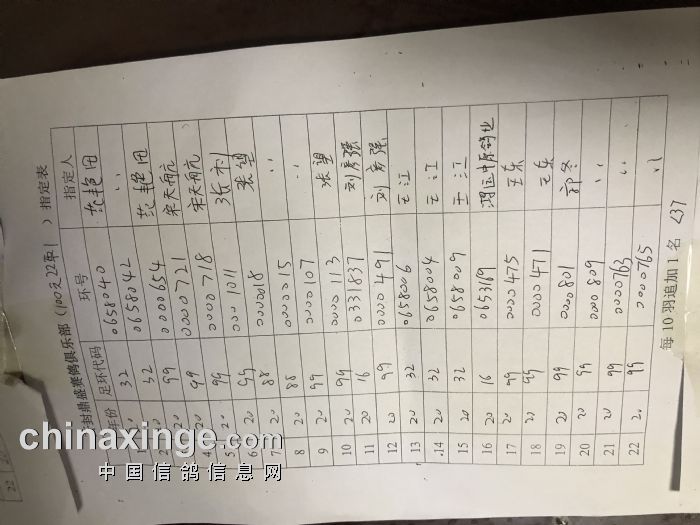 封鼎盛赛鸽俱乐部（100元22取1）指定表
年份 足环代码 环号 指定人
1 20 32 0658040 范艳田
2 20 32 0658042 〃
3 20 99 0000654 范艳田
4 20 99 0000721 宋天雨航
5 20 99 0000718 宋天雨航
6 20 99 0001011
7 20 88 0000018 张望
8 20 88 0000015 〃
9 20 99 0000107
10 20 99 0000113 张望
11 20 16 0331837 刘彦强
12 20 99 0000491 刘彦强
13 20 32 0658006 王江
14 20 32 0658004 王江
15 20 32 0658009 王江
16 20 16 0653169
17 20 99 0000475 王东
18 20 99 0000471 王东
19 20 99 0000801 郭冬
20 20 99 0000809 〃
21 20 99 0000763 〃
22 20 99 0000765 〃
每10羽追加1名 237
chinaxinge.com
中国信鸽信息网
22